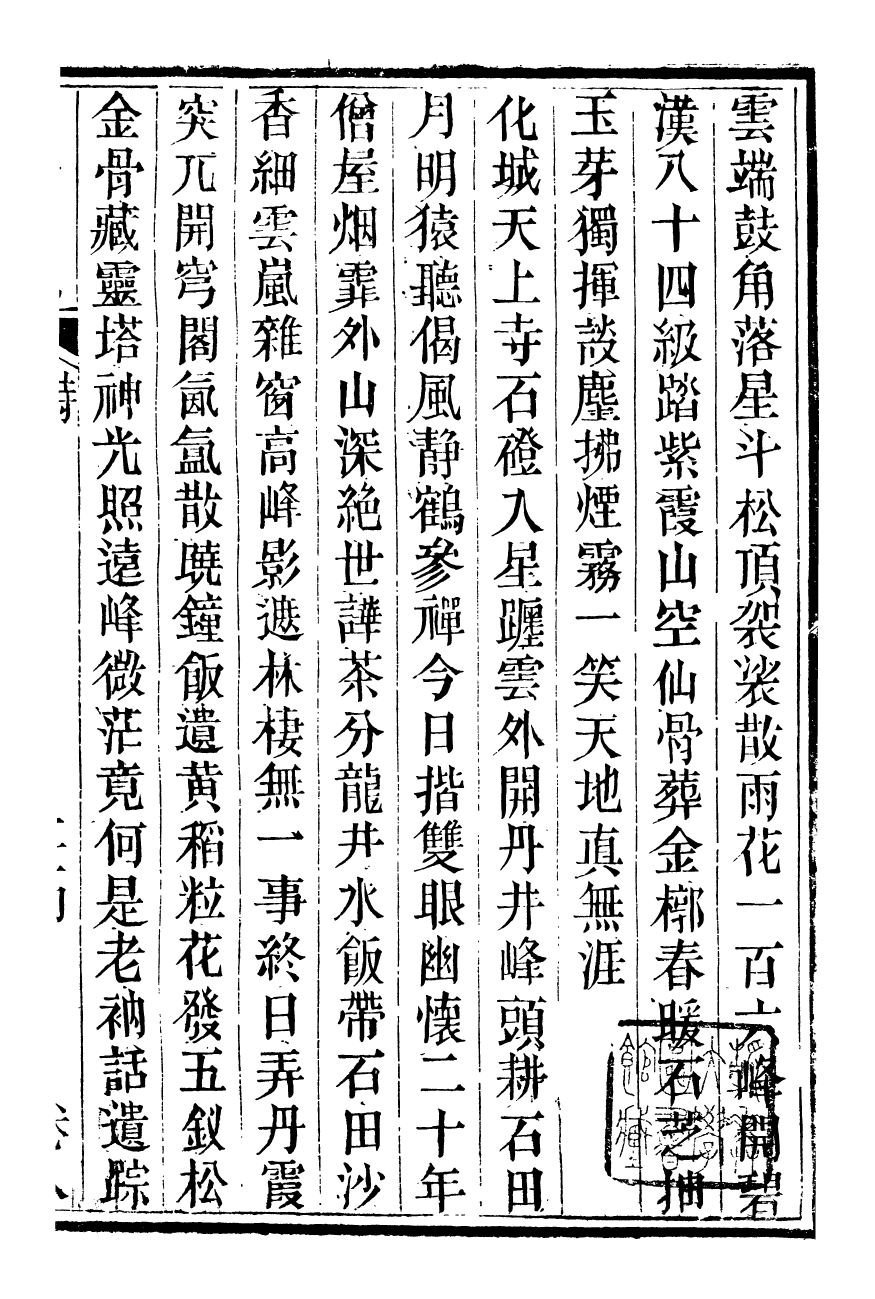 雲端鼓角落星斗松頂袈裟散雨花一百六峰開碧
漢八十四級踏紫霞山空仙骨葬金槨春暖石芝抽
玉芽獨揮談麈拂煙霧一笑天地真無涯
化城天上寺石磴入星躔雲外開丹井峰頭耕石田
月明猿聽偈風靜鶴參禪今日揩雙眼幽懷二十年
僧屋烟霏外山深絶世譁茶分龍井水飯帶石田沙
香細雲嵐雜窗高峰影遮林棲無一事終日弄丹霞
突兀開穹閣氤氳散曉鐘飯遺黄稻粒花發五釵松
金骨藏靈塔神光照遠峰微茫竟何是老衲話遺踪